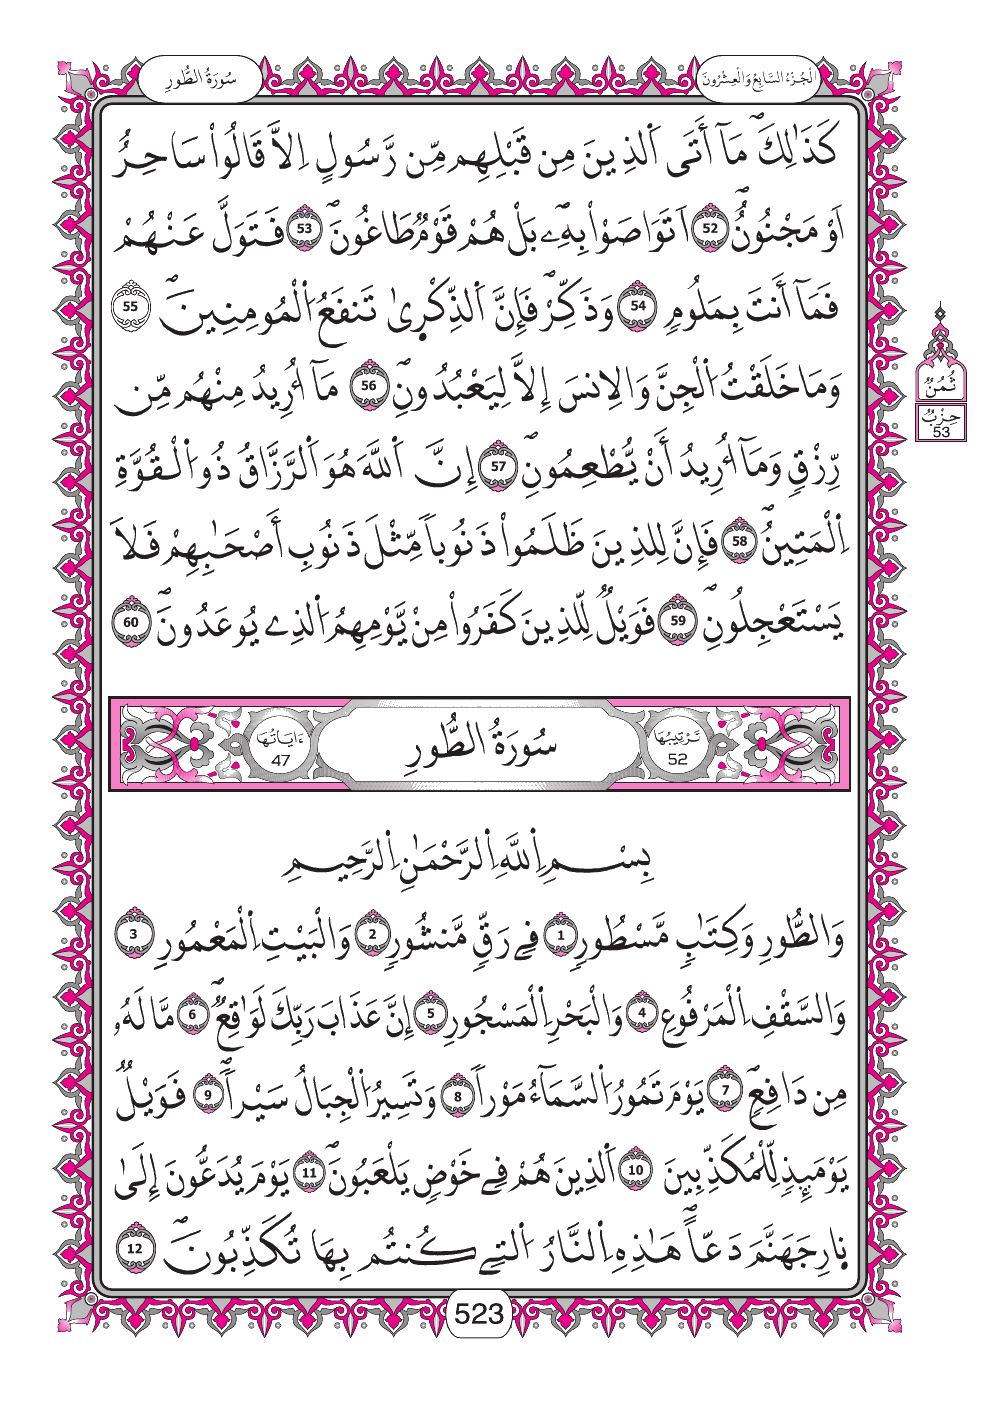 سُورَةُ الطُّورِ
الْجُزْءُ السَّابِعُ وَالْعِشْرُونَ
كَذَٰلِكَ مَآ أَتَى اَ۬لذِينَ مِن قَبْلِهِم مِّن رَّسُولٍ اِلَّا قَالُواْ سَاحِرٌ
اَوْ مَجْنُونٌ 52 اَتَوَاصَوْاْ بِهِۦ بَلْ هُمْ قَوْمٌ طَاغُونَ 53 فَتَوَلَّ عَنْهُمْ
فَمَآ أَنتَ بِمَلُومٍ 54 وَذَكِّرْ فَإِنَّ اَ۬لذِّكْر۪ىٰ تَنفَعُ اُ۬لْمُومِنِينَ 55
وَمَا خَلَقْتُ اُ۬لْجِنَّ وَالِانسَ إِلَّا لِيَعْبُدُونِ 56 مَآ أُرِيدُ مِنْهُم مِّن
رِّزْقٍ وَمَآ أُرِيدُ أَنْ يُّطْعِمُونِ 57 إِنَّ اَ۬للَّهَ هُوَ اَ۬لرَّزَّاقُ ذُو اُ۬لْقُوَّةِ
اِ۬لْمَتِينُ 58 فَإِنَّ لِلذِينَ ظَلَمُواْ ذَنُوباً مِّثْلَ ذَنُوبِ أَصْحَٰبِهِمْ فَلَا
يَسْتَعْجِلُونِ 59 فَوَيْلٌ لِّلذِينَ كَفَرُواْ مِنْ يَّوْمِهِمُ اُ۬لذِے يُوعَدُونَ 60
ثُمُنٌ
حِزْبٌ
53
تَرْتِيبُهَا 52
سُورَةُ الطُّورِ
ءَايَاتُهَا 47
بِسْمِ اِ۬للَّهِ اِ۬لرَّحْمَٰنِ اِ۬لرَّحِيمِ
وَالطُّورِ وَكِتَٰبٍ مَّسْطُورٍ 1 فِے رَقٍّ مَّنشُورٍ 2 وَالْبَيْتِ اِ۬لْمَعْمُورِ 3
وَالسَّقْفِ اِ۬لْمَرْفُوعِ 4 وَالْبَحْرِ اِ۬لْمَسْجُورِ 5 إِنَّ عَذَابَ رَبِّكَ لَوَٰقِعٌ 6 مَّا لَهُۥ
مِن دَافِعٍ 7 يَوْمَ تَمُورُ اُ۬لسَّمَآءُ مَوْراً 8 وَتَسِيرُ اُ۬لْجِبَالُ سَيْراً 9 فَوَيْلٌ
يَوْمَئِذٍ لِّلْمُكَذِّبِينَ 10 اَ۬لذِينَ هُمْ فِے خَوْضٍ يَلْعَبُونَ 11 يَوْمَ يُدَعُّونَ إِلَىٰ
ن۪ارِ جَهَنَّمَ دَعّاً هَٰذِهِ اِ۬لنَّارُ اُ۬لتِے كُنتُم بِهَا تُكَذِّبُونَ 12
523